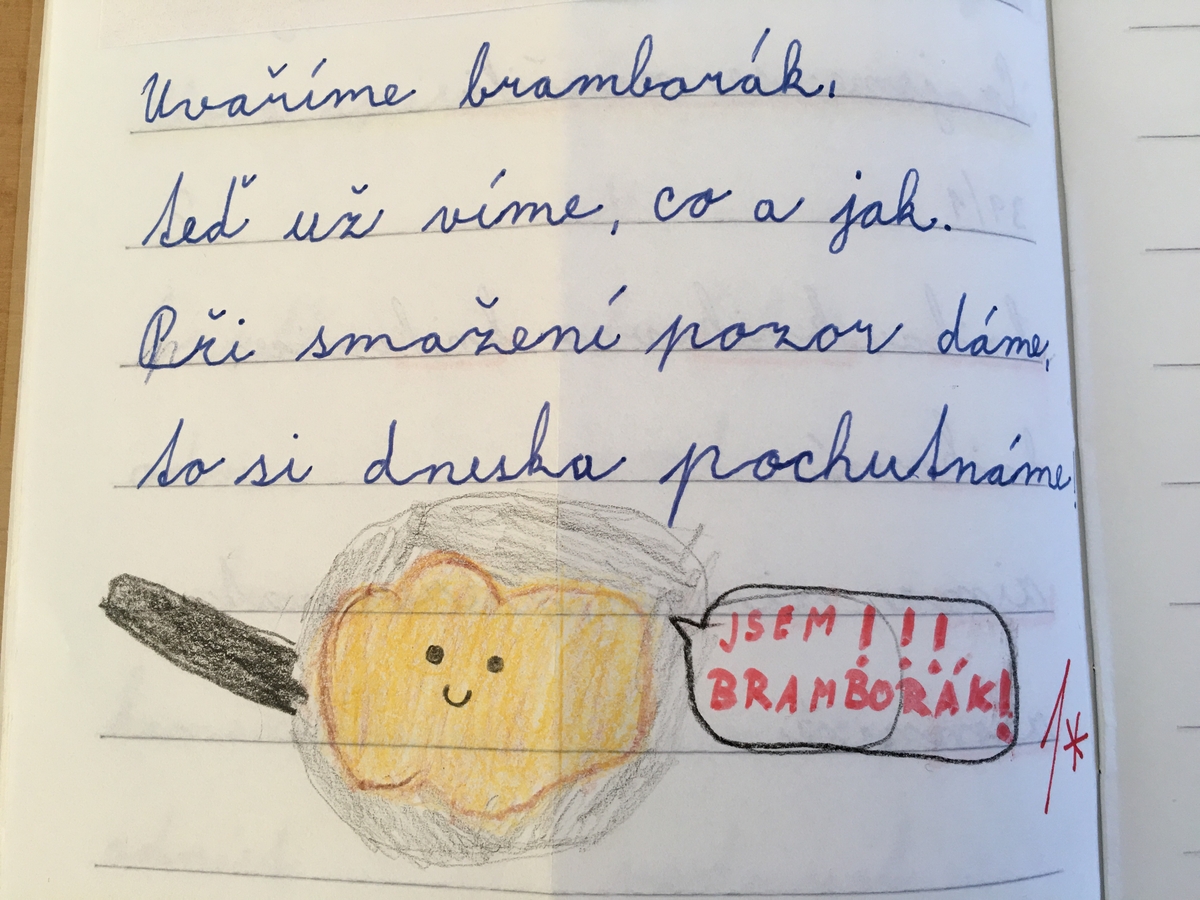 Uvaříme bramborák,
teď už víme, co a jak.
Při smažení pozor dáme,
to si dneska pochutnáme!
JSEM !!!
BRAMBORÁK!
1*